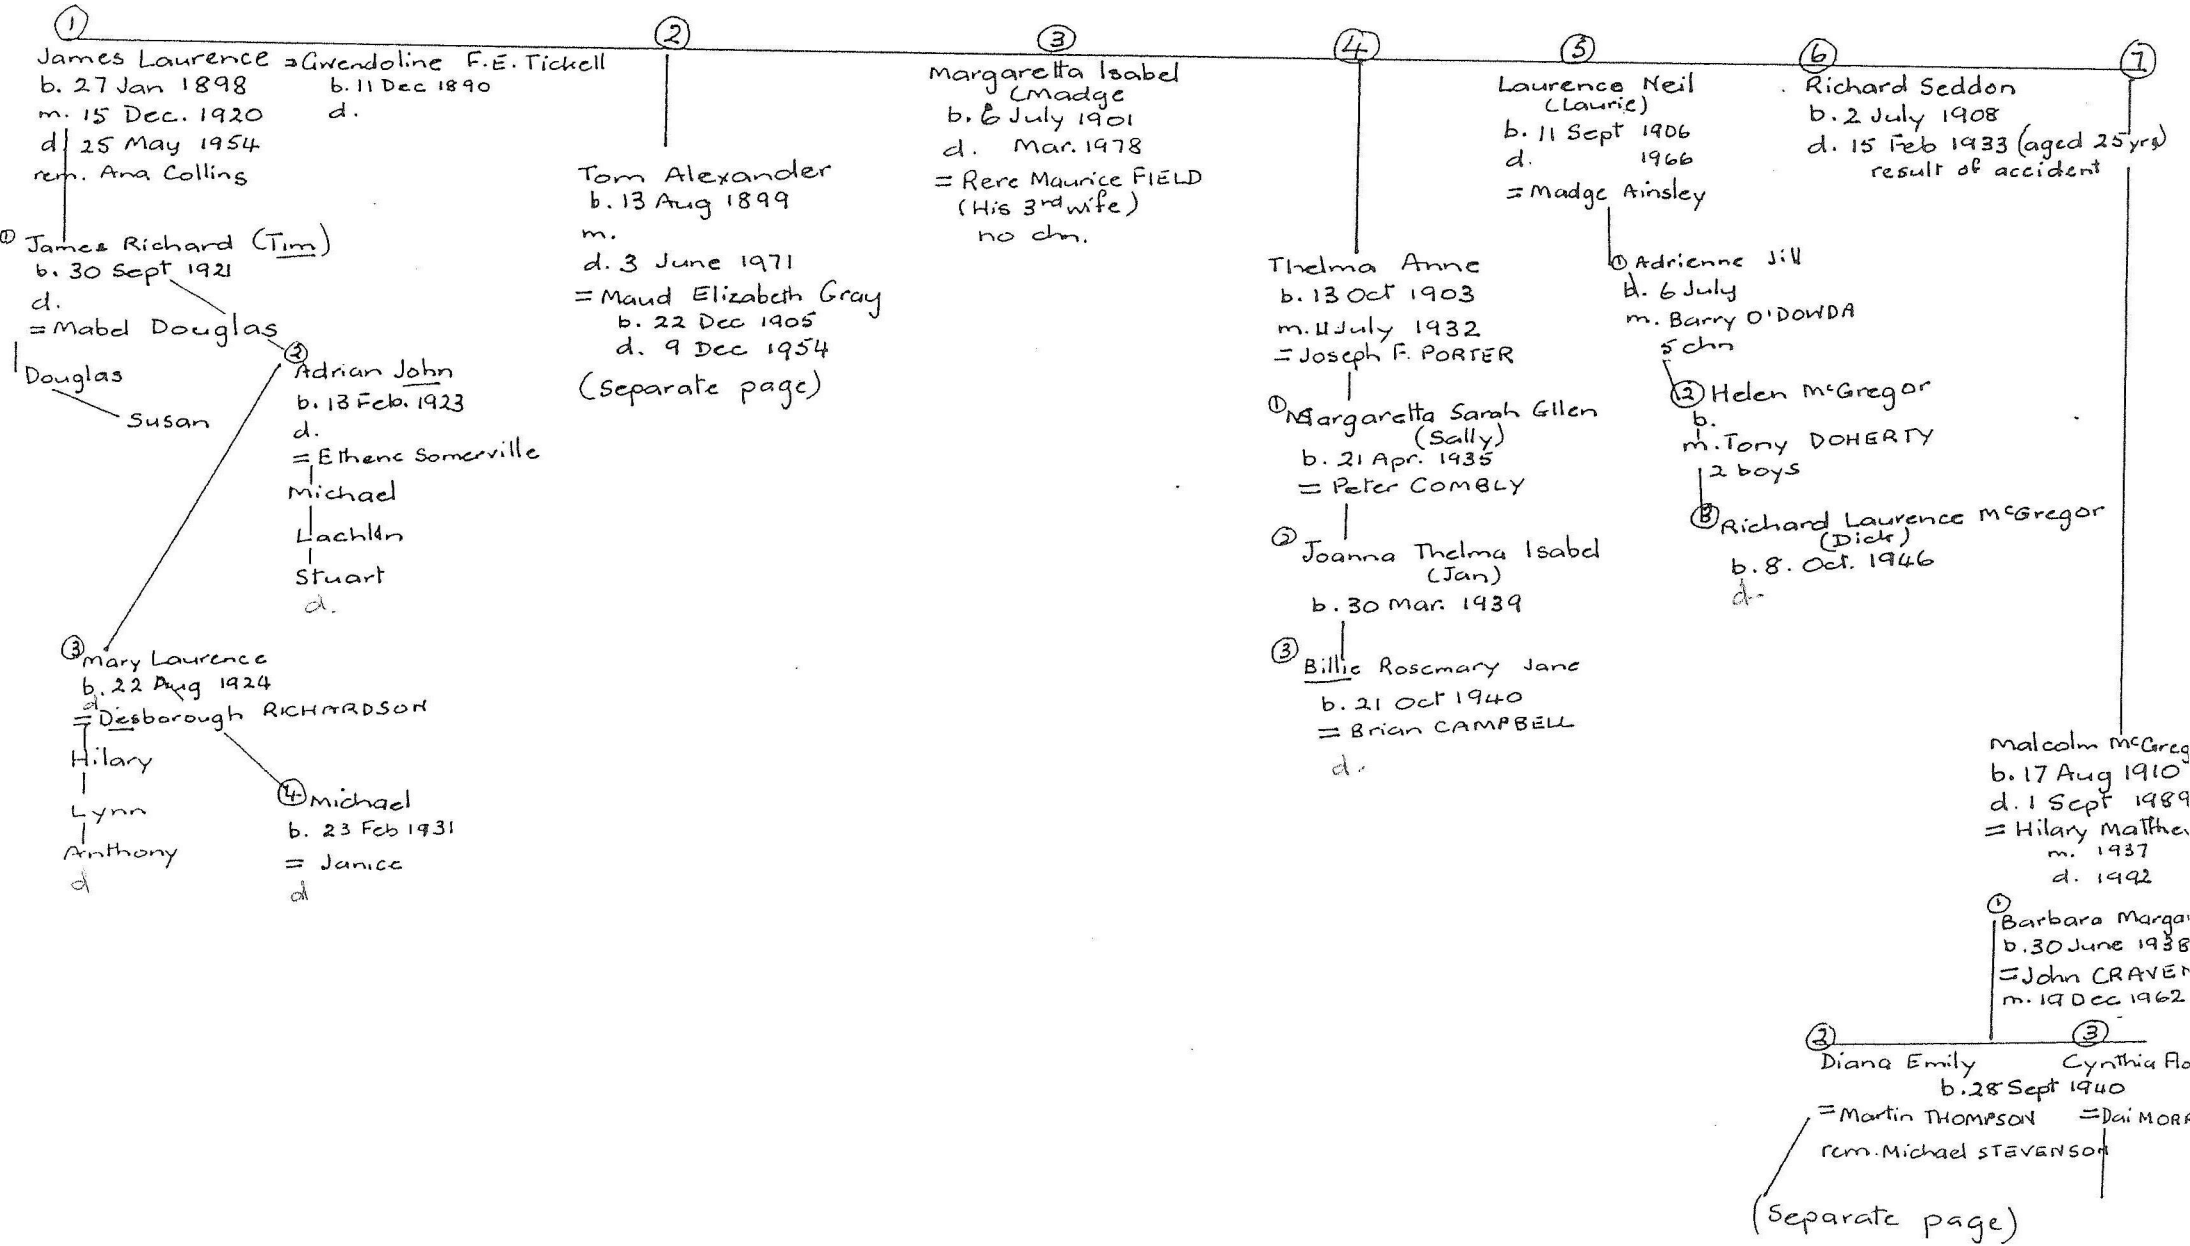 ①
James Laurence = Gwendoline F.E. Tickell
b. 27 Jan 1898 b. 11 Dec 1890
m. 15 Dec. 1920 d.
d 25 May 1954
rem. Ana Collins
① James Richard (Tim)
b. 30 Sept 1921
d.
= Mabel Douglas
Douglas
Susan
② Adrian John
b. 13 Feb. 1923
d.
= Ethene Somerville
Michael
Lachlan
Stuart
d.
③ Mary Laurence
b. 22 Aug 1924
d
= Desborough RICHARDSON
Hilary
Lynn
Anthony
d
④ Michael
b. 23 Feb 1931
= Janice
d
②
Tom Alexander
b. 13 Aug 1899
m.
d. 3 June 1971
= Maud Elizabeth Gray
b. 22 Dec 1905
d. 9 Dec 1954
(Separate page)
③
Margaretta Isabel
(Madge
b. 6 July 1901
d. Mar. 1978
= Rere Maurice FIELD
(His 3rd wife)
no chn.
④
Thelma Anne
b. 13 Oct 1903
m. 11 July 1932
= Joseph F. PORTER
① Margaretta Sarah Ellen
(Sally)
b. 21 Apr. 1935
= Peter COMBLY
② Joanna Thelma Isabel
(Jan)
b. 30 Mar. 1939
③ Billie Rosemary Jane
b. 21 Oct 1940
= Brian CAMPBELL
d.
⑤
Laurence Neil
(Laurie)
b. 11 Sept 1906
d. 1966
= Madge Ainsley
① Adrienne Jill
b. 6 July
m. Barry O'DOWDA
5 chn
② Helen McGregor
b.
m. Tony DOHERTY
2 boys
③ Richard Laurence McGregor
(Dick)
b. 8. Oct. 1946
d.
⑥
Richard Seddon
b. 2 July 1908
d. 15 Feb 1933 (aged 25 yrs)
result of accident
⑦
Malcolm McGreg
b. 17 Aug 1910
d. 1 Sept 1989
= Hilary Matthe
m. 1937
d. 1992
①
Barbara Marga
b. 30 June 1938
= John CRAVEN
m. 19 Dec 1962
② ③
Diana Emily Cynthia Flo
b. 28 Sept 1940
= Martin THOMPSON = Dai MORR
rem. Michael STEVENSON
(Separate page)